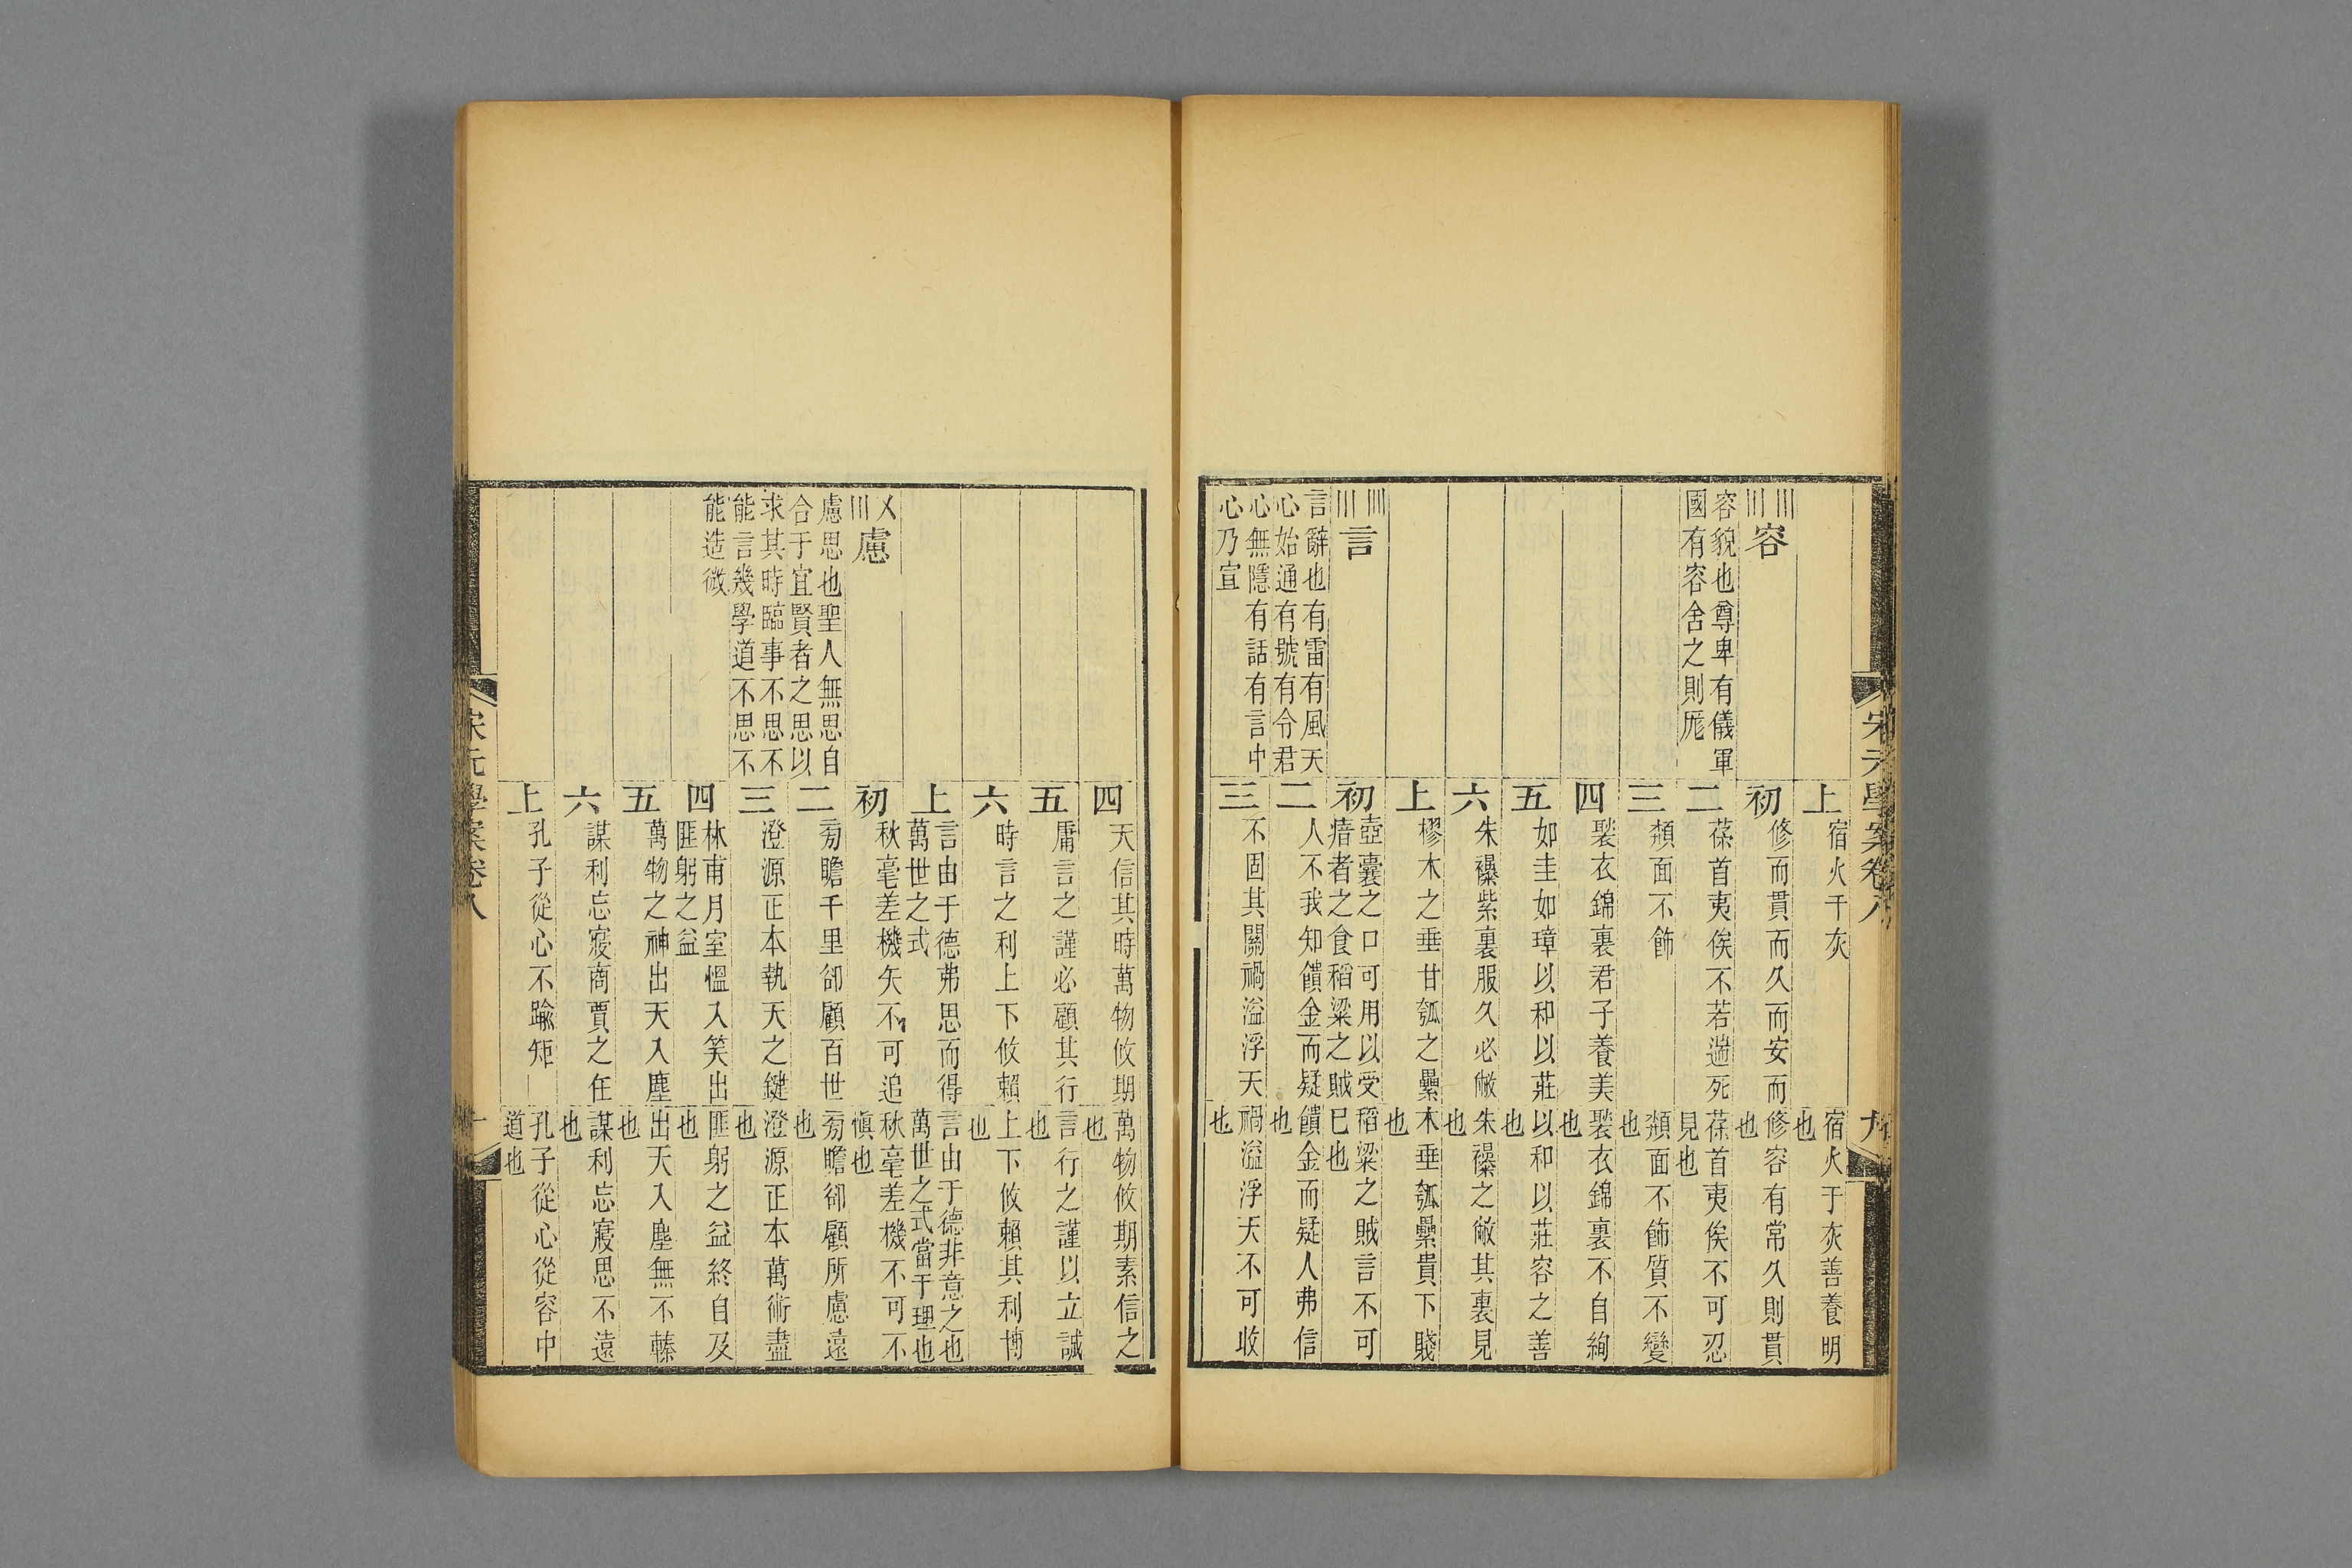 宋元學案卷八
九
上
宿火干灰
宿火于灰善養明
也
容
容貌也尊卑有儀軍
國有容舍之則厖
初
修而貫而久而安而
修容有常久則貫
也
二
葆首夷俟不若遄死
葆首夷俟不可忍
見也
三
頮面不飾
頮面不飾質不變
也
四
褧衣錦裏君子養美
褧衣錦裏不自絢
也
五
如圭如璋以和以莊
以和以莊容之善
也
六
朱襮紫裏服久必敝
朱襮之敝其裏見
也
上
樛木之垂甘瓠之纍
木垂瓠纍貴下賤
也
言
言辭也有雷有風天
心始通有號有令君
心無隱有話有言中
心乃宣
初
壺囊之口可用以受
瘖者之食稻粱之賊
稻粱之賊言不可
巳也
二
人不我知饋金而疑
饋金而疑人弗信
也
三
不固其關禍溢浮天
禍溢浮天不可收
也
四
天信其時萬物攸期
萬物攸期素信之
也
五
庸言之謹必顧其行
言行之謹以立誠
也
六
時言之利上下攸賴
上下攸賴其利博
也
上
言由于德弗思而得
萬世之式
言由于德非意之也
萬世之式當于理也
慮
慮思也聖人無思自
合于宜賢者之思以
求其時臨事不思不
能言幾學道不思不
能造微
初
秋毫差機矢不可追
秋毫差機不可不
愼也
二
旁瞻千里卻顧百世
旁瞻卻顧所慮遠
也
三
澄源正本執天之鍵
澄源正本萬術盡
也
四
林甫月室慍入笑出
匪躬之益
匪躬之益終自及
也
五
萬物之神出天入塵
出天入塵無不轃
也
六
謀利忘寢商賈之任
謀利忘寢思不遠
也
上
孔子從心不踰矩
孔子從心從容中
道也
宋元學案卷八